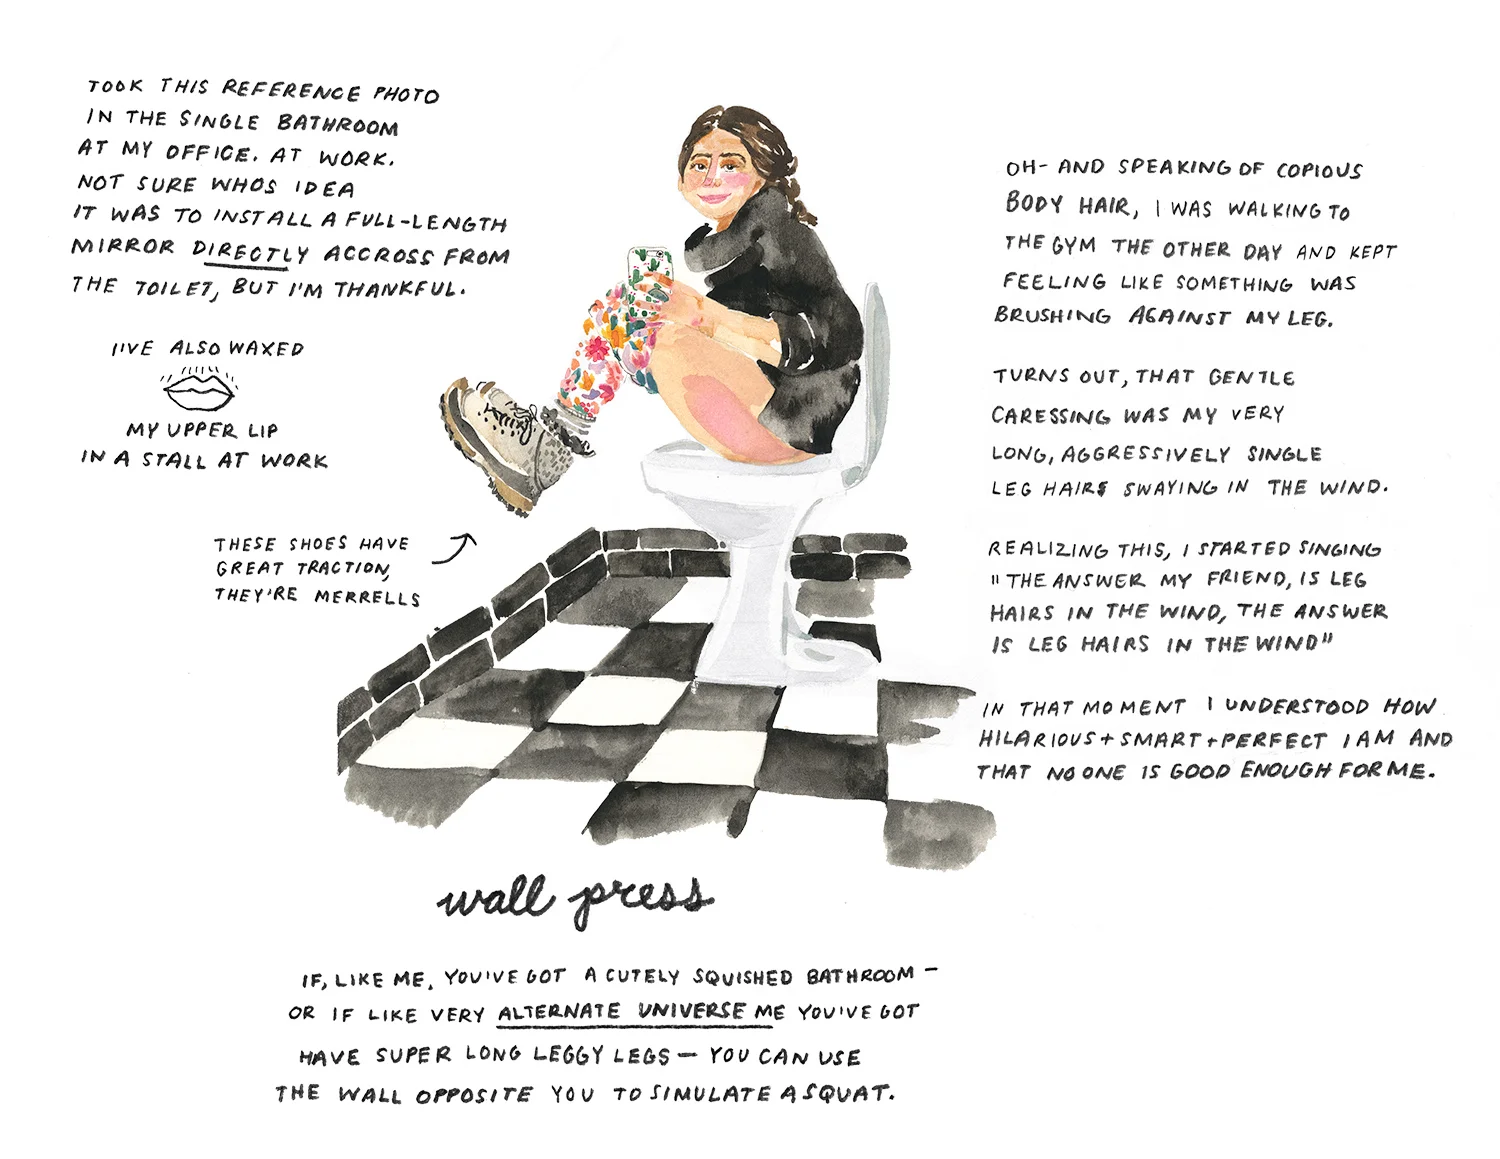 TOOK THIS REFERENCE PHOTO
IN THE SINGLE BATHROOM
AT MY OFFICE. AT WORK.
NOT SURE WHOS IDEA
IT WAS TO INSTALL A FULL-LENGTH
MIRROR DIRECTLY ACCROSS FROM
THE TOILET, BUT I'M THANKFUL.
I'VE ALSO WAXED
MY UPPER LIP
IN A STALL AT WORK
THESE SHOES HAVE
GREAT TRACTION,
THEY'RE MERRELLS
OH- AND SPEAKING OF COPIOUS
BODY HAIR, I WAS WALKING TO
THE GYM THE OTHER DAY AND KEPT
FEELING LIKE SOMETHING WAS
BRUSHING AGAINST MY LEG.
TURNS OUT, THAT GENTLE
CARESSING WAS MY VERY
LONG, AGGRESSIVELY SINGLE
LEG HAIRS SWAYING IN THE WIND.
REALIZING THIS, I STARTED SINGING
"THE ANSWER MY FRIEND, IS LEG
HAIRS IN THE WIND, THE ANSWER
IS LEG HAIRS IN THE WIND"
IN THAT MOMENT I UNDERSTOOD HOW
HILARIOUS + SMART + PERFECT I AM AND
THAT NO ONE IS GOOD ENOUGH FOR ME.
wall press
IF, LIKE ME, YOU'VE GOT A CUTELY SQUISHED BATHROOM —
OR IF LIKE VERY ALTERNATE UNIVERSE ME YOU'VE GOT
HAVE SUPER LONG LEGGY LEGS — YOU CAN USE
THE WALL OPPOSITE YOU TO SIMULATE A SQUAT.